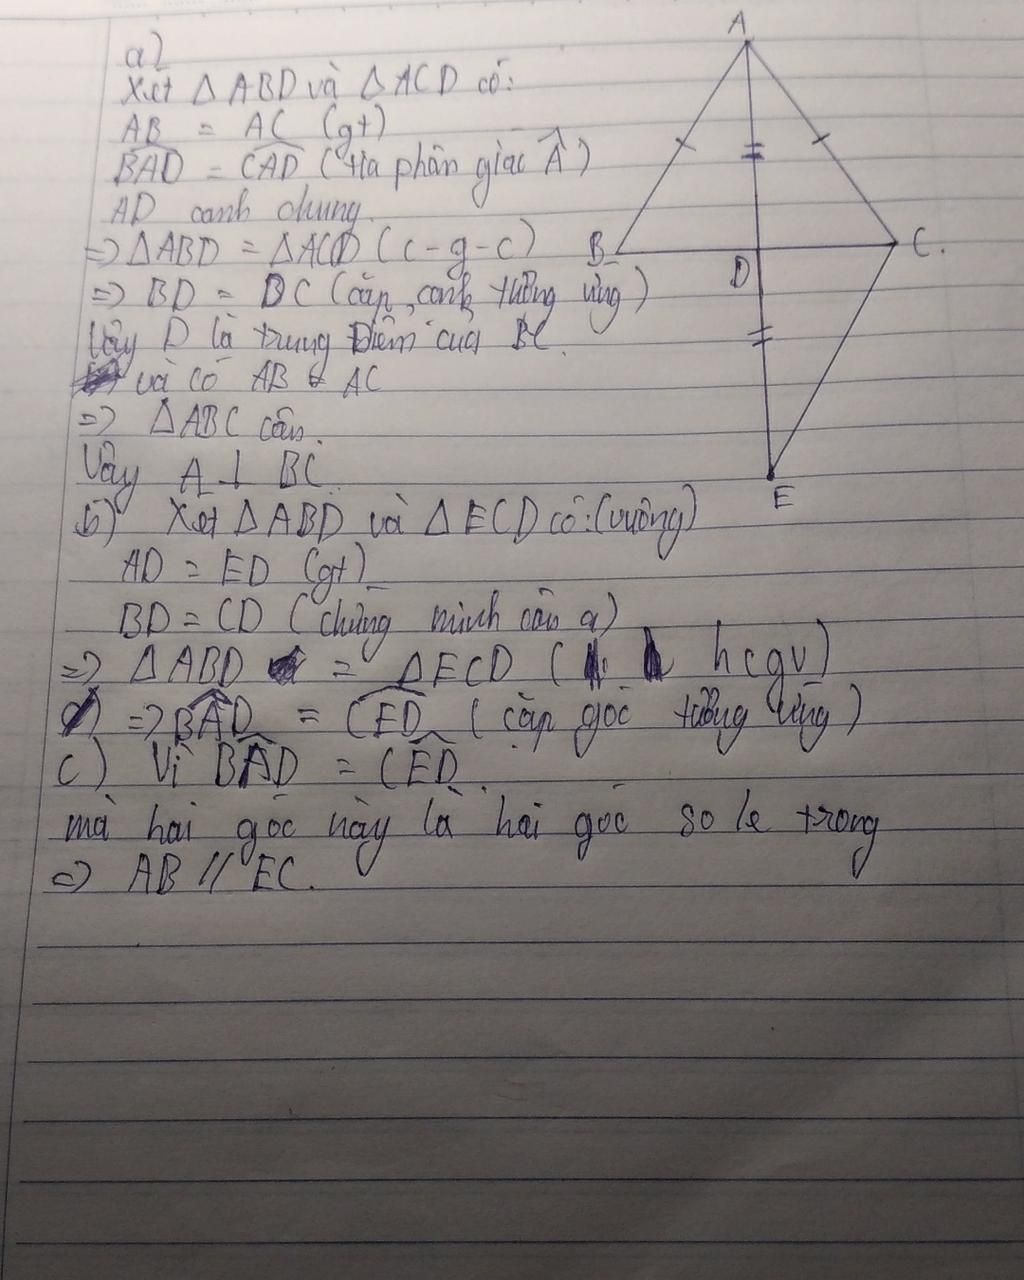 a)
Xét Δ ABD và Δ ACD có:
AB = AC (gt)
BAD = CAD (tia phân giác Â)
AD cạnh chung.
=> ΔABD = ΔACD (c-g-c)
=> BD = DC (cặp cạnh tương ứng)
Vậy D là trung điểm của BC.
và có AB = AC
=> ΔABC cân.
Vậy A ⊥ BC.
b) Xét ΔABD và ΔECD có: (vuông)
AD = ED (gt)
BD = CD (chứng minh câu a)
=> ΔABD = ΔECD (hcgv)
=> BAD = CED (cặp góc tương ứng)
c) Vì BAD = CED.
mà hai góc này là hai góc so le trong
=> AB // EC.
A
B
C.
D
E